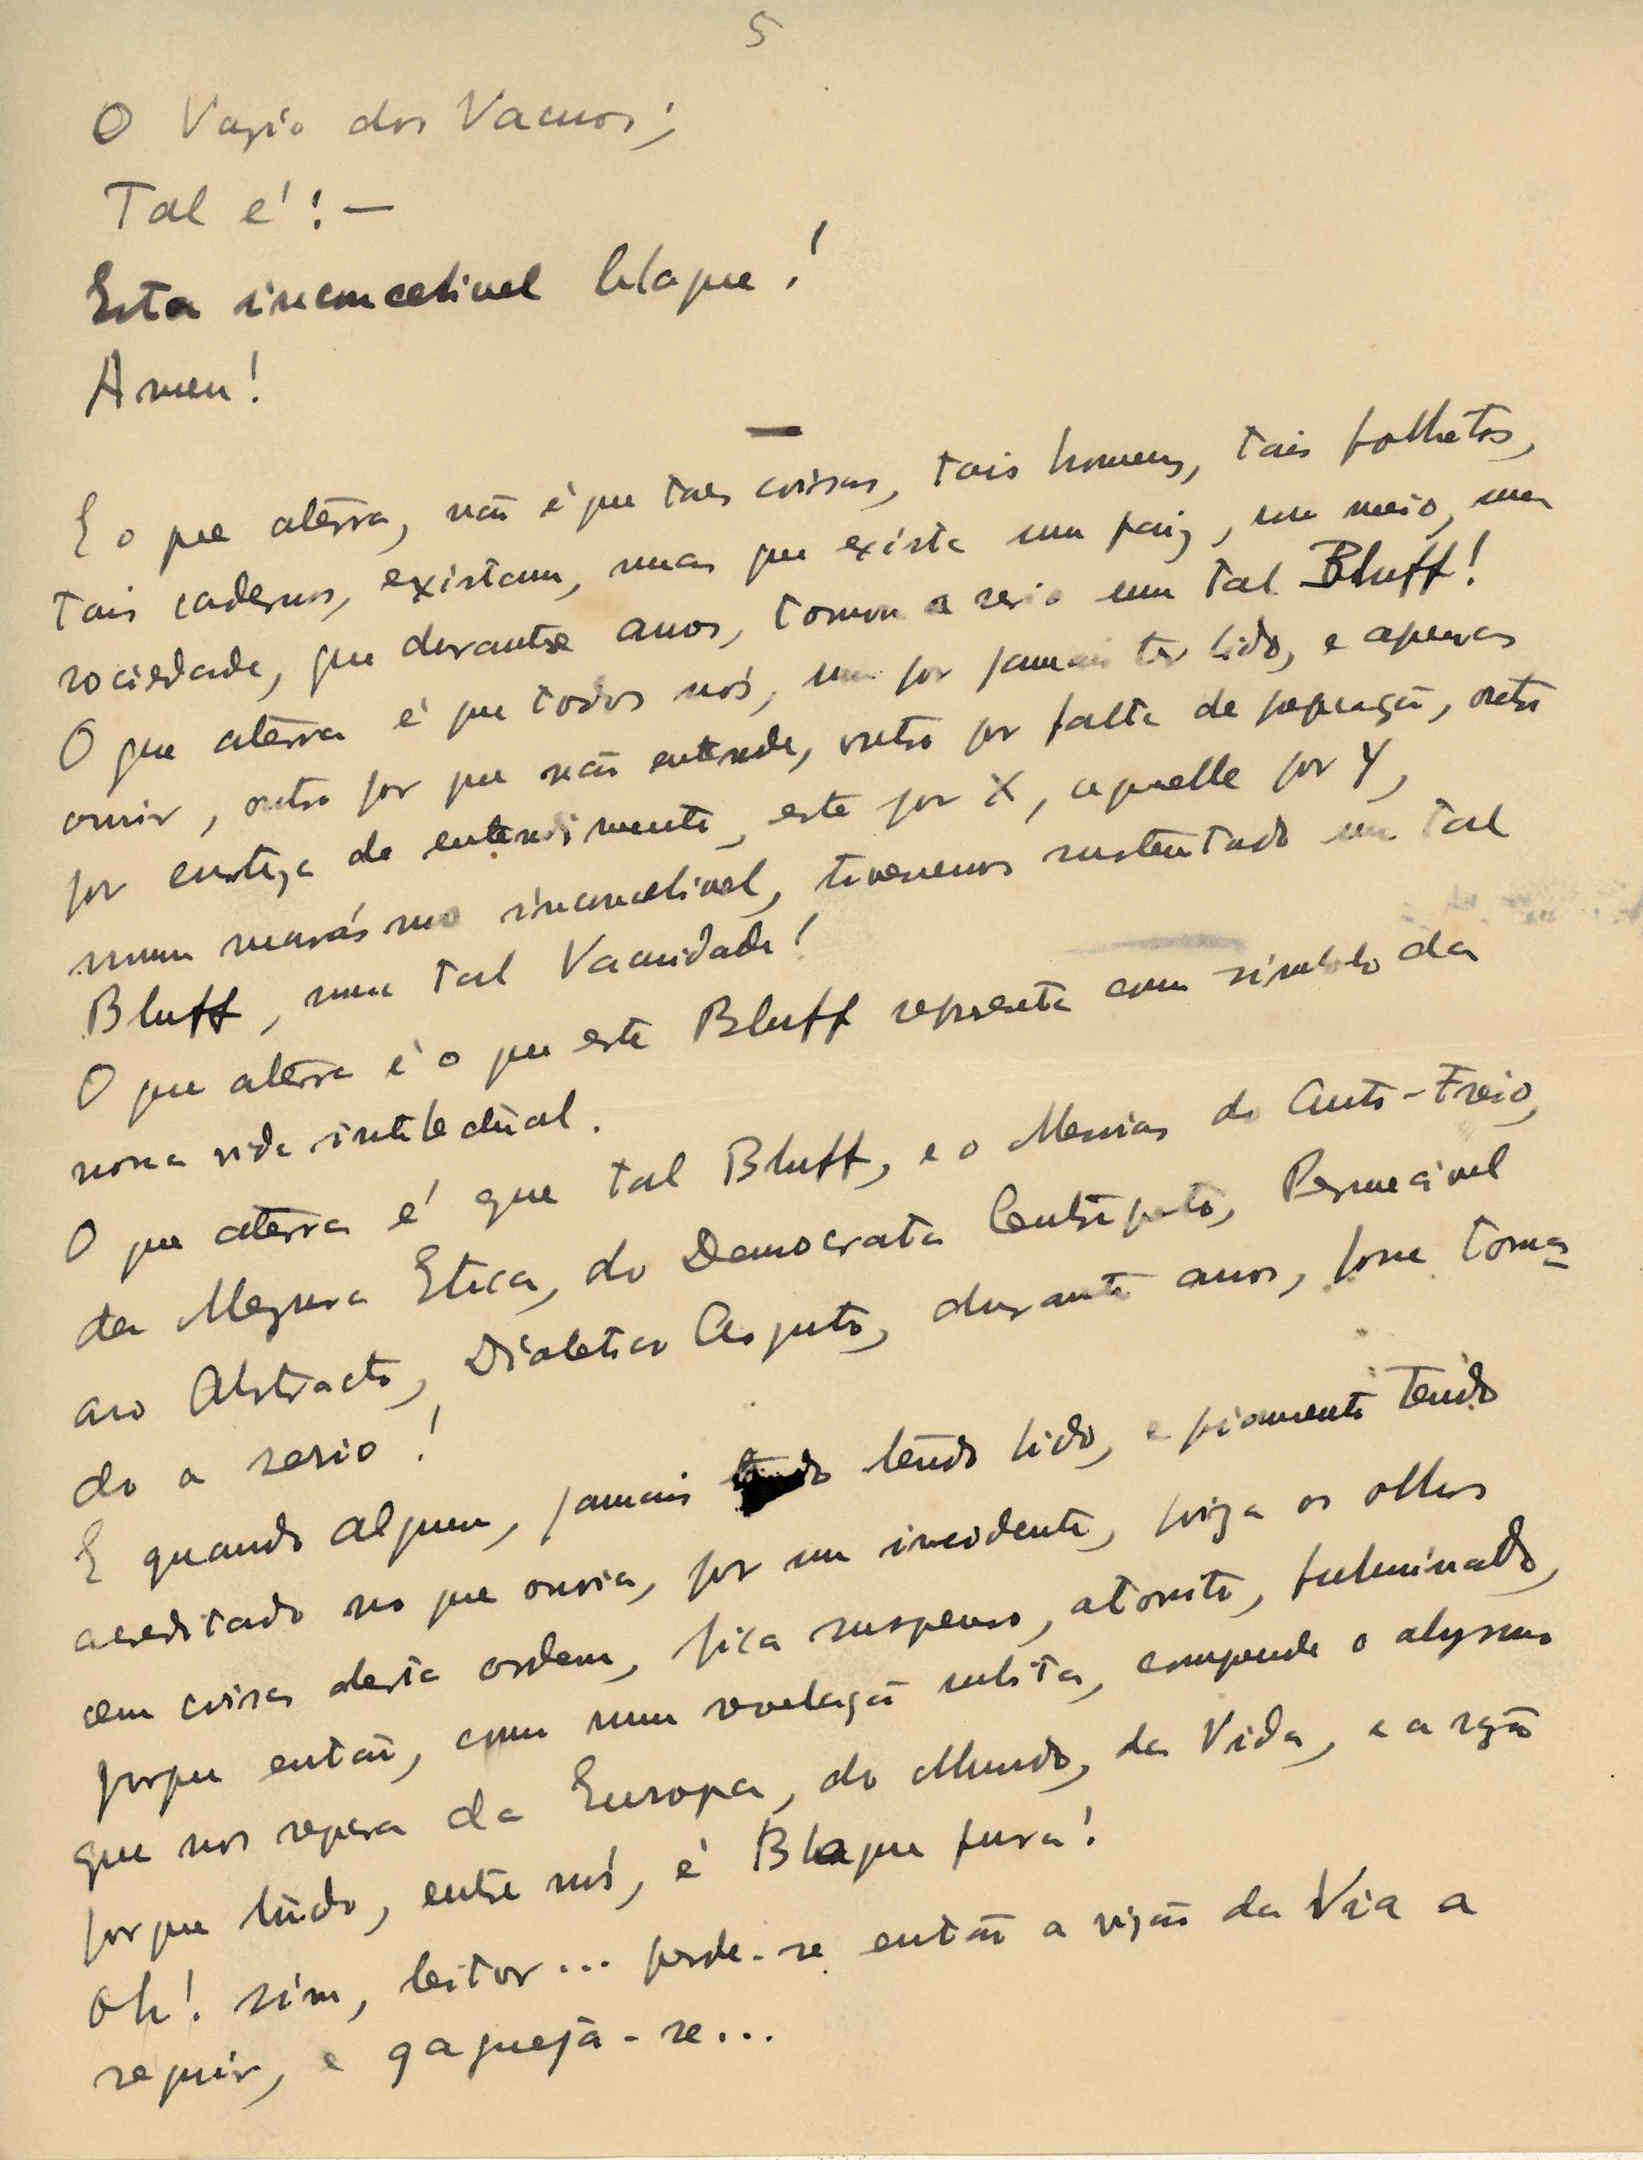 5
O Vazio dos Vacuos;
Tal é! —
Esta inconcebivel blague!
Amen!
—
E o que aterra, não é que taes coisas, tais homens, tais folhetos,
tais cadernos, existam, mas que exista um paiz, um meio, uma
sociedade, que durante anos, tomou a serio um tal Bluff!
O que aterra é que todos nós, um por jamais ter lido, e apenas
ouvir, outro por que não entende, outro por falta de preparação, outro
por curteza de entendimento, este por X, aquelle por Y,
num marásmo inconcebivel, tivessemos sustentado um tal
Bluff, uma tal Vacuidade!
O que aterra é o que este Bluff representa como simbolo da
nossa vida intelectual.
O que aterra é que tal Bluff, e o Messias do Auto-Freio,
da Magnra Etica, do Democrata Centripeto, Permeável
ao Abstracto, Dialetico Arguto, durante anos, fosse toma-
do a serio!
E quando alguem, jamais tendo lido, e piamente tendo
acreditado no que ouvia, por um incidente, poiza os olhos
em coisas desta ordem, fica suspenso, atonito, fulminado,
porque então, como numa revelação subita, compreende o abysmo
que nos separa da Europa, do Mundo, da Vida, e a razão
porque tudo, entre nós, é Blague pura!
Oh! sim, leitor... perde-se então a visão da Via a
seguir, e gagueja-se...